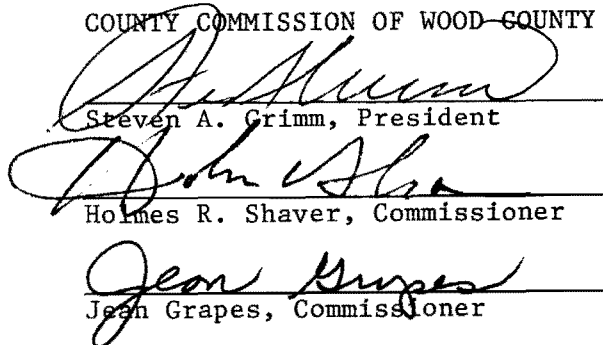 COUNTY COMMISSION OF WOOD COUNTY
Steven A. Grimm, President
Holmes R. Shaver, Commissioner
Jean Grapes
Jean Grapes, Commissioner